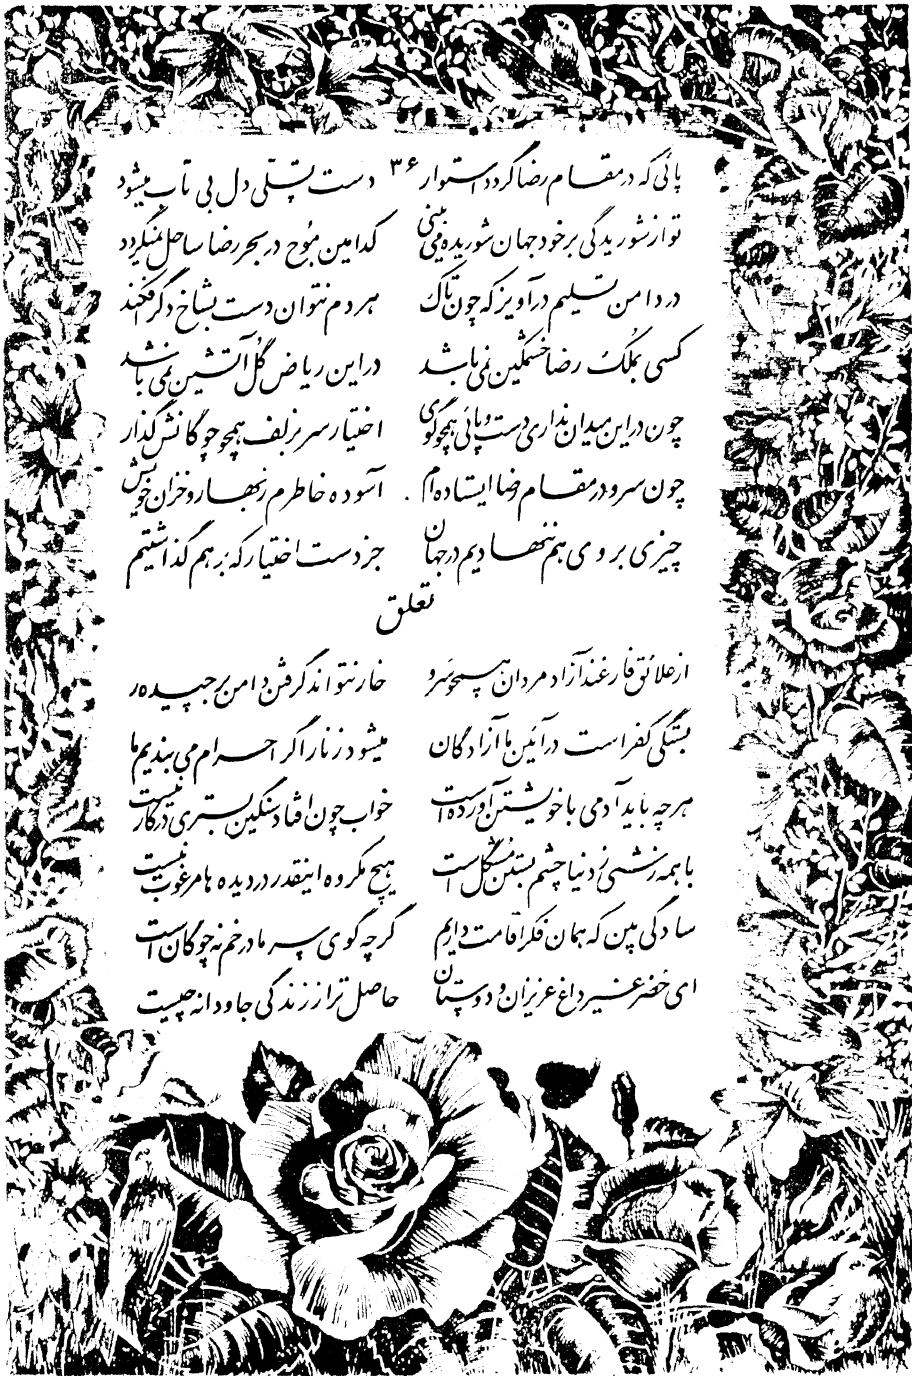 پائی که در مقام رضا گردد استوار ۳۶ دست تسلّی دل بی تاب میشود
تو از شوریدگی بر خود جهان شوریده می بینی کدامین موج در بحر رضا ساحل نمیگردد
در دامن تسلیم در آویز که چون تاک هر دم نتوان دست بشاخ دگر افکند
کسی بملک رضا خشمگین نمی باشد در این ریاض گل آتشین نمی باشد
چون در این میدان نداری دست و پائی همچو گوی اختیار سر بزلف همچو چوگانش گذار
چون سرو در مقام رضا ایستاده ام آسوده خاطرم ز بهار و خزان خویش
چیزی بروی هم ننهادیم در جهان جز دست اختیار که بر هم گذاشتیم
تعلق
از علائق فارغند آزاد مردان همچو سرو خار نتواند گرفتن دامن بر چیده را
بستگی کفر است در آئین ما آزادگان میشود زنار اگر احرام می بندیم ما
هر چه باید آدمی با خویشتن آورده است خواب چون افتاد سنگین بستری در کار نیست
با همه زشتی ز دنیا چشم بستن مشکل است هیچ مکروه اینقدر در دیده ها مرغوب نیست
سادگی بین که همان فکر اقامت داریم گرچه گوی سر ما در خم نه چوگان است
ای خضر غیر داغ عزیزان و دوستان حاصل ترا ز زندگی جاودانه چیست